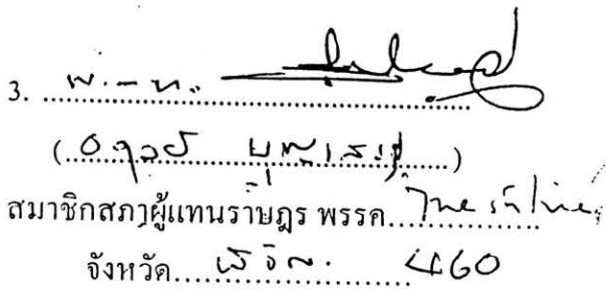 3. พ.ท.
(อดุลย์ บุญเสรฐ)
สมาชิกสภาผู้แทนราษฎร พรรค ไทยรักไทย
จังหวัด พิจิตร 460